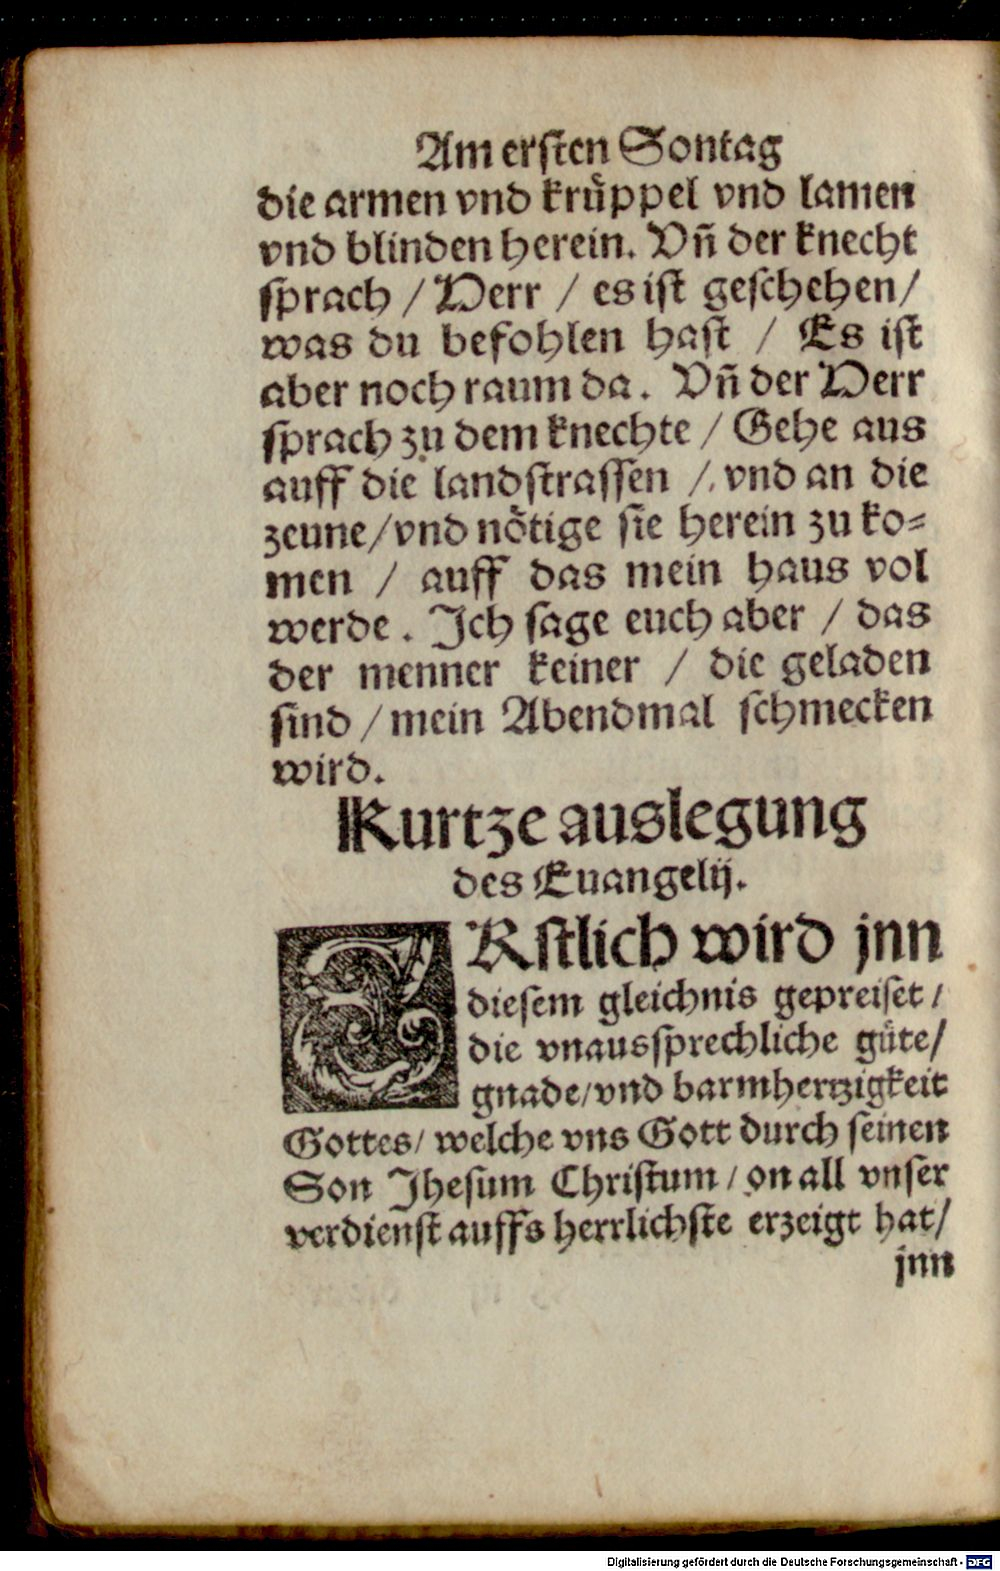 Am ersten Sontag
die armen vnd kruͤppel vnd lamen
vnd blinden herein. Vñ der knecht
sprach / Herr / es ist geschehen /
was du befohlen hast / Es ist
aber noch raum da. Vñ der Herr
sprach zu dem knechte / Gehe aus
auff die landstrassen / vnd an die
zeune / vnd noͤtige sie herein zu ko⸗
men / auff das mein haus vol
werde. Ich sage euch aber / das
der menner keiner / die geladen
sind / mein Abendmal schmecken
wird.
Kurtze auslegung
des Euangelij.
ERstlich wird jnn
diesem gleichnis gepreiset /
die vnaussprechliche guͤte /
gnade / vnd barmhertzigkeit
Gottes / welche vns Gott durch seinen
Son Jhesum Christum / on all vnser
verdienst auffs herrlichste erzeigt hat /
jnn
Digitalisierung gefördert durch die Deutsche Forschungsgemeinschaft - DFG